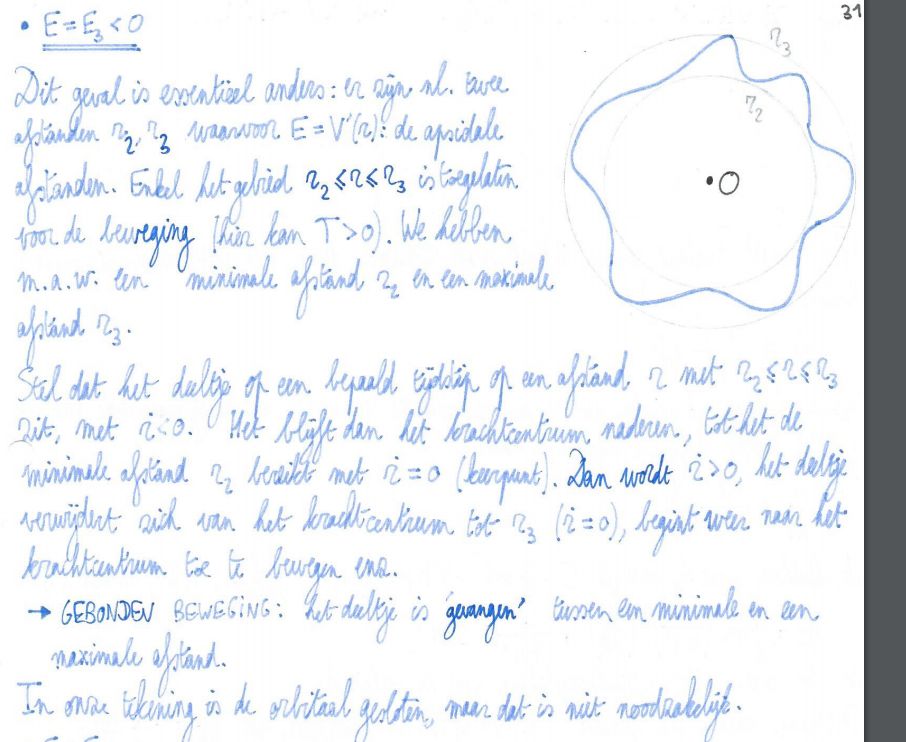 31
• E = E₃ < 0
Dit geval is essentieel anders: er zijn nl. twee
afstanden r₂, r₃ waarvoor E = V'(r): de apsidale
afstanden. Enkel het gebied r₂ ⩽ r ⩽ r₃ is toegelaten
voor de beweging (hier kan T > 0). We hebben
m.a.w. een minimale afstand r₂ en een maximale
afstand r₃.
r₃
r₂
O
Stel dat het deeltje op een bepaald tijdstip op een afstand r met r₂ ⩽ r ⩽ r₃
zit, met ṙ < 0. Het blijft dan het krachtcentrum naderen, tot het de
minimale afstand r₂ bereikt met ṙ = 0 (keerpunt). Dan wordt ṙ > 0, het deeltje
verwijdert zich van het krachtcentrum tot r₃ (ṙ = 0), begint weer naar het
krachtcentrum toe te bewegen enz.
→ GEBONDEN BEWEGING: het deeltje is 'gevangen' tussen een minimale en een
maximale afstand.
In onze tekening is de orbitaal gesloten, maar dat is niet noodzakelijk.